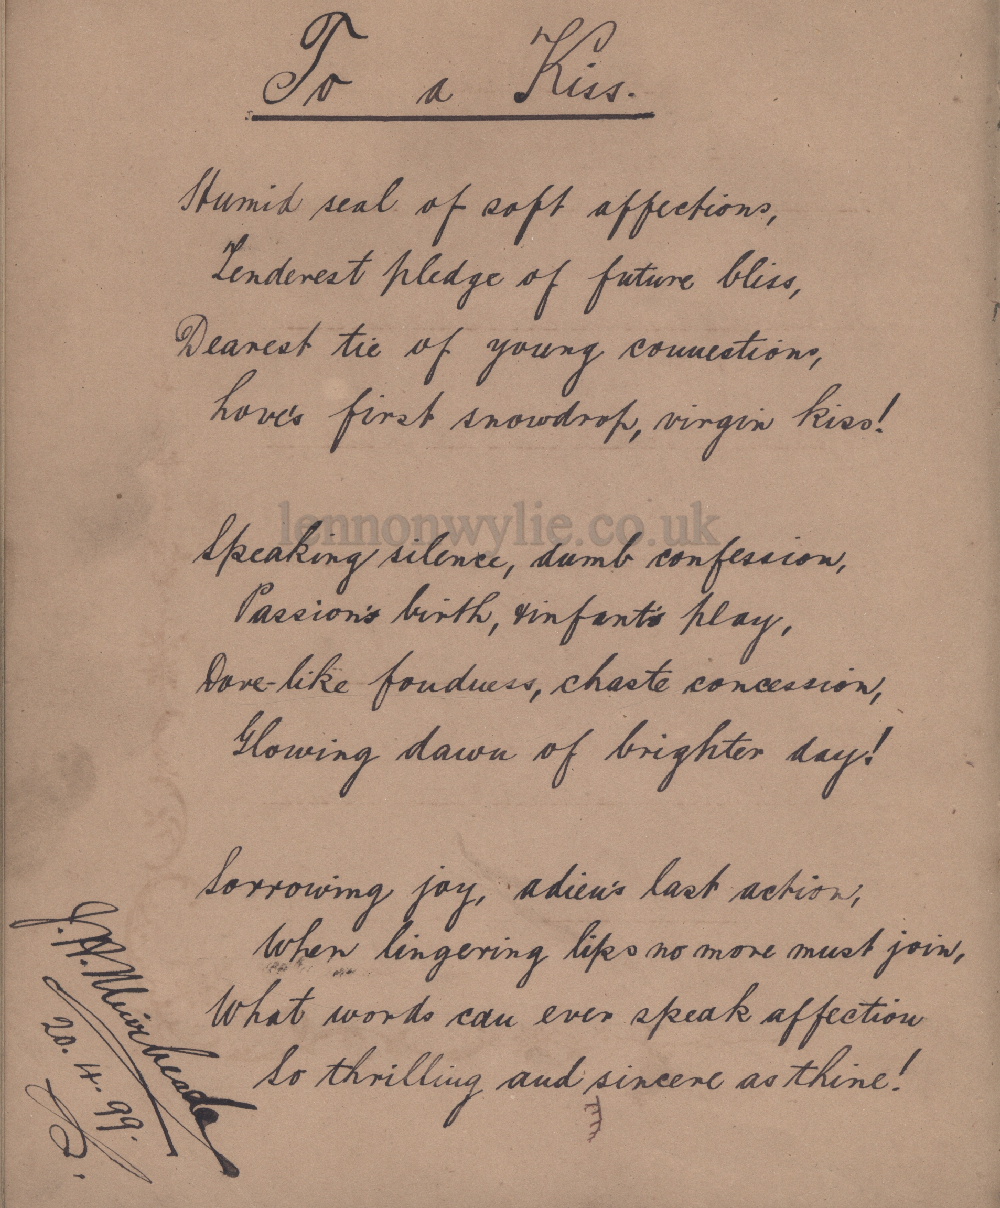 To a Kiss.
Humid seal of soft affections,
Tenderest pledge of future bliss,
Dearest tie of young connections,
Love's first snowdrop, virgin kiss!
lennonwylie.co.uk
Speaking silence, dumb confession,
Passion's birth, & infant's play,
Dove-like fondness, chaste concession,
Glowing dawn of brighter day!
Sorrowing joy, adieu's last action,
When lingering lips no more must join,
What words can ever speak affection
So thrilling and sincere as thine!
20.4.99.